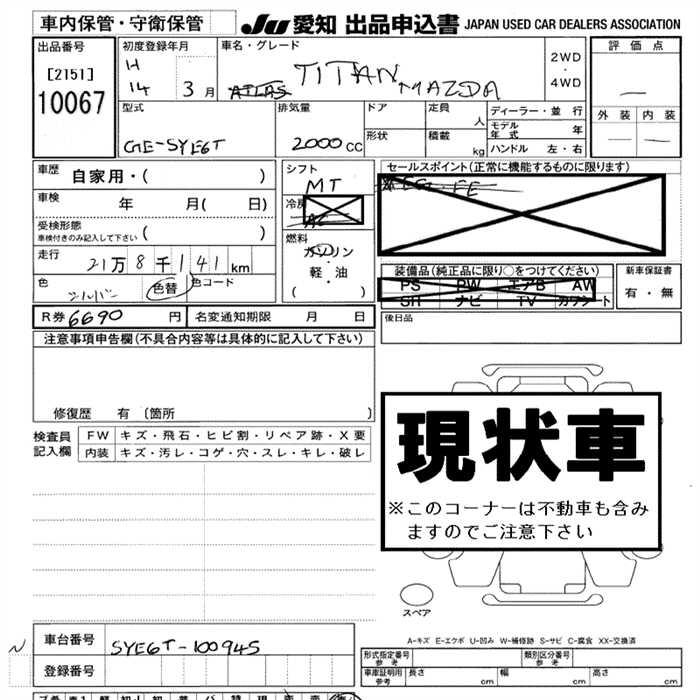 車内保管・守衛保管
JU 愛知 出品申込書 JAPAN USED CAR DEALERS ASSOCIATION
出品番号
[2151]
10067
初度登録年月
H
14 3月
車名・グレード
ATLAS TITAN MAZDA
2WD
・
4WD
評価点
—
外装 内装
— —
型式
GE-SYE6T
排気量
2000cc
ドア
形状
定員 人
積載 kg
ディーラー・並行
モデル年式 年
ハンドル 左・右
車歴 自家用・( )
車検 年 月( 日)
受検形態
車検付きのみ記入して下さい ( )
走行
21万8千141km
色 シルバー 色替 色コード
シフト
MT
冷房
AC
燃料
ガソリン
・
軽・油
( )
セールスポイント(正常に機能するものに限ります)
EG. FE
装備品(純正品に限り○をつけてください)
PS PW エアB AW
SR ナビ TV カワシート
新車保証書
有・無
R券 6690円 名変通知期限 月 日
後日品
注意事項申告欄(不具合内容等は具体的に記入して下さい)
修復歴 有 〔箇所 〕
検査員記入欄
FW キズ・飛石・ヒビ割・リペア跡・X要
内装 キズ・汚レ・コゲ・穴・スレ・キレ・破レ
現状車
※このコーナーは不動車も含み
ますのでご注意下さい
スペア
A-キズ E-エクボ U-凹み W-補修跡 S-サビ C-腐食 XX-交換済
N
車台番号 SYE6T-100945
登録番号
形式指定番号
参考
類別区分番号
参考
車庫証明用
参考
長さ cm 幅 cm 高さ cm